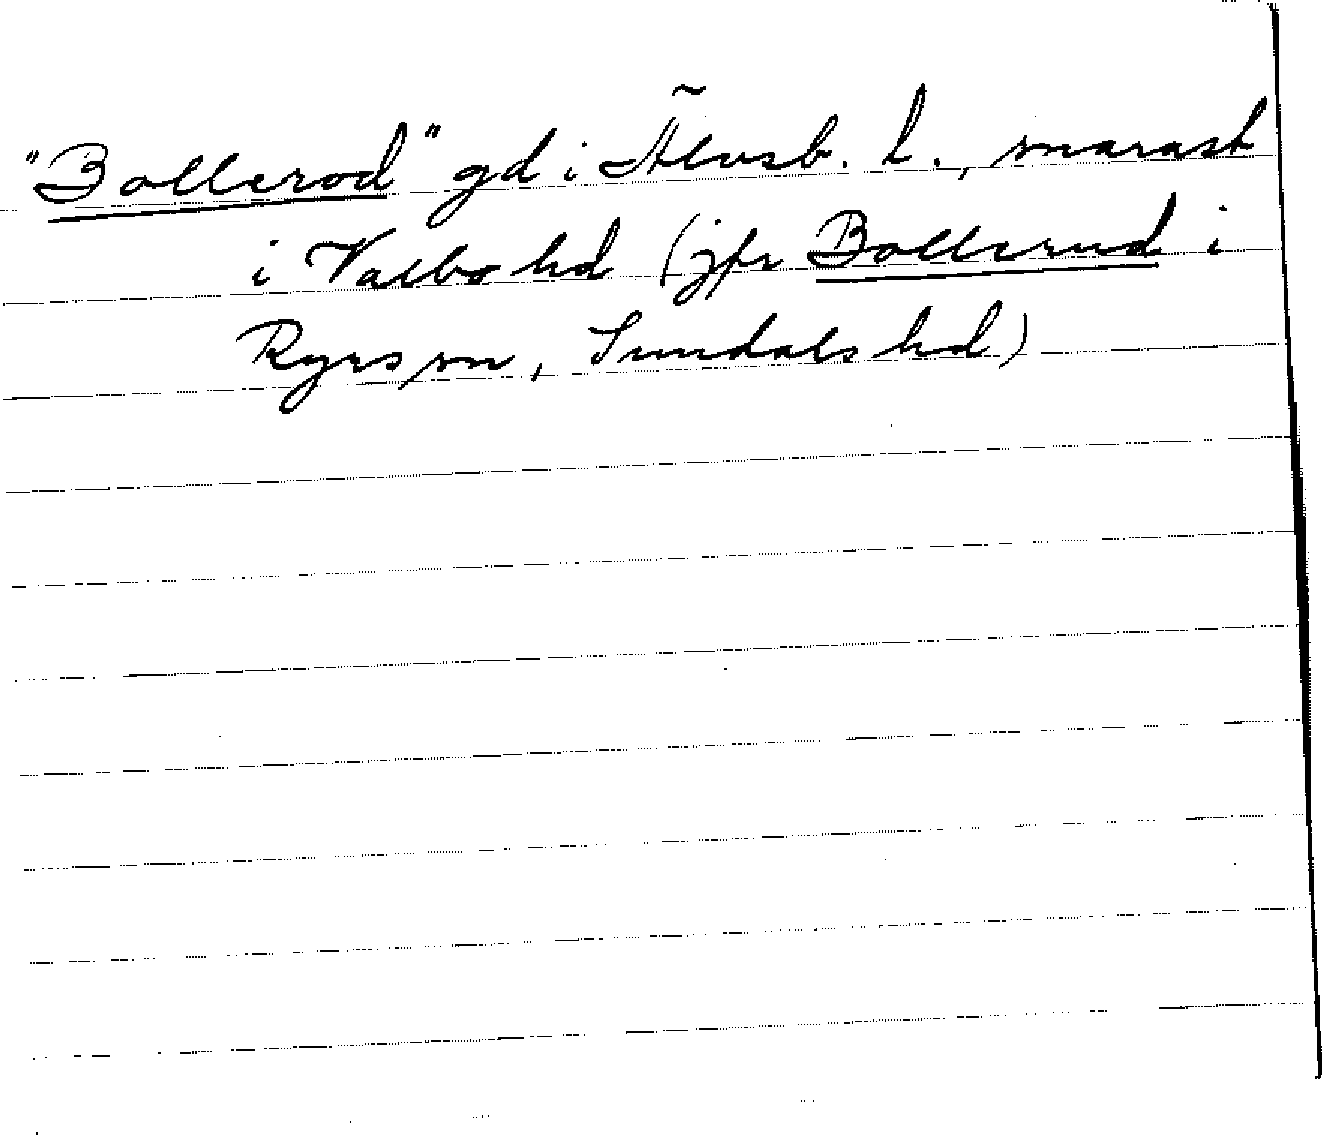 "Bollerod" gd i Älvsb. l., snarast
i Valbo hd (jfr Bollerud i
Ryrs sn, Sundals hd)